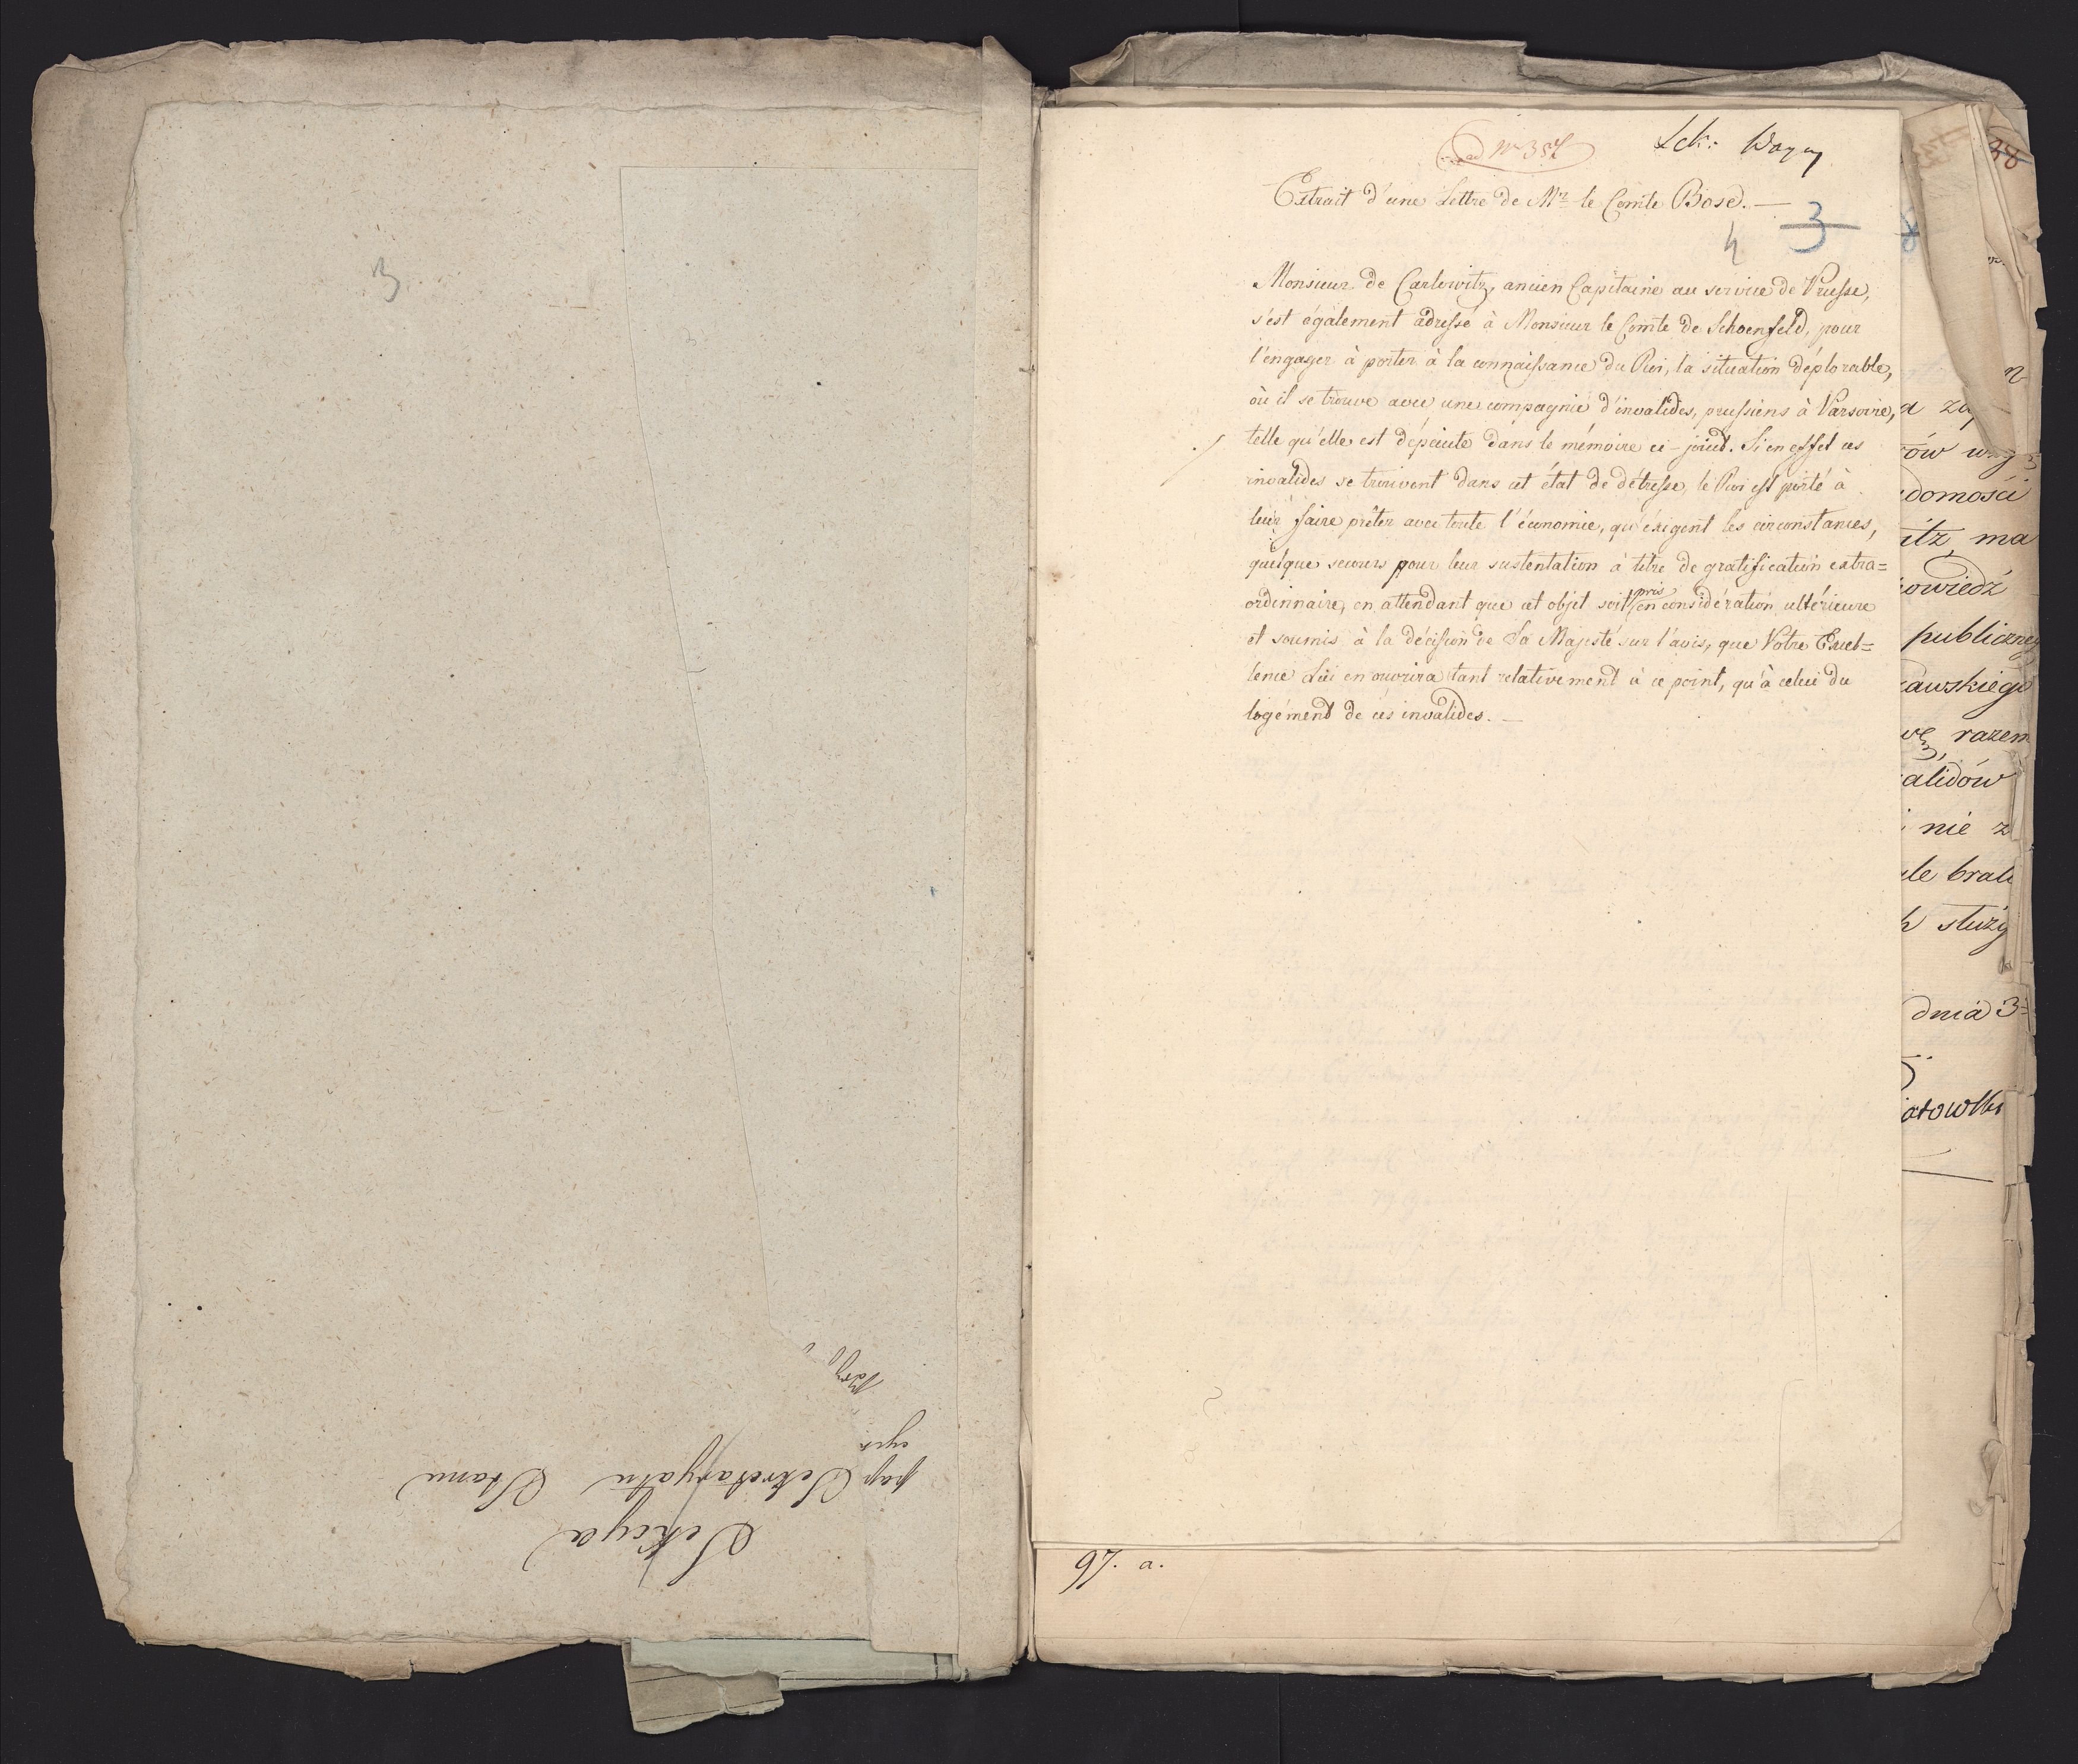 3
Sekcya
Sekretaryatu Stanu
ad Nº 357
Extrait d'une Lettre de Mr. le Comte Bose. —
4 3
Monsieur de Carlowitz, ancien Capitaine au service de Prusse,
s'est également adressé à Monsieur le Comte de Schoenfeld, pour
l'engager à porter à la connaissance du Roi, la situation déplorable,
où il se trouve avec une compagnie d'invalides, prussiens à Varsovie,
telle qu'elle est dépeinte dans le mémoire ci-joint. Si en effet ces
invalides se trouvent dans cet état de détresse, le Roi est porté à
leur faire prêter avec toute l'économie, qu'éxigent les circonstances,
quelque secours pour leur sustentation à titre de gratification extra=
ordinnaire, en attendant que cet objet soit pris en considération ultérieure
et soumis à la décision de Sa Majesté sur l'avis, que Votre Excel=
lence Lui en ouvrira tant relativement à ce point, qu'à celui du
logément de ces invalides. —
97. a.
38
domości
itz, ma
owiedź
publiczney
zawskiego
razem
alidów
nie z
ale brali
h służy
dnia 3